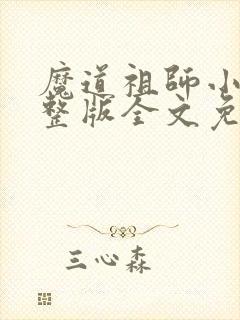 魔道祖師小
整版全文免
三心森